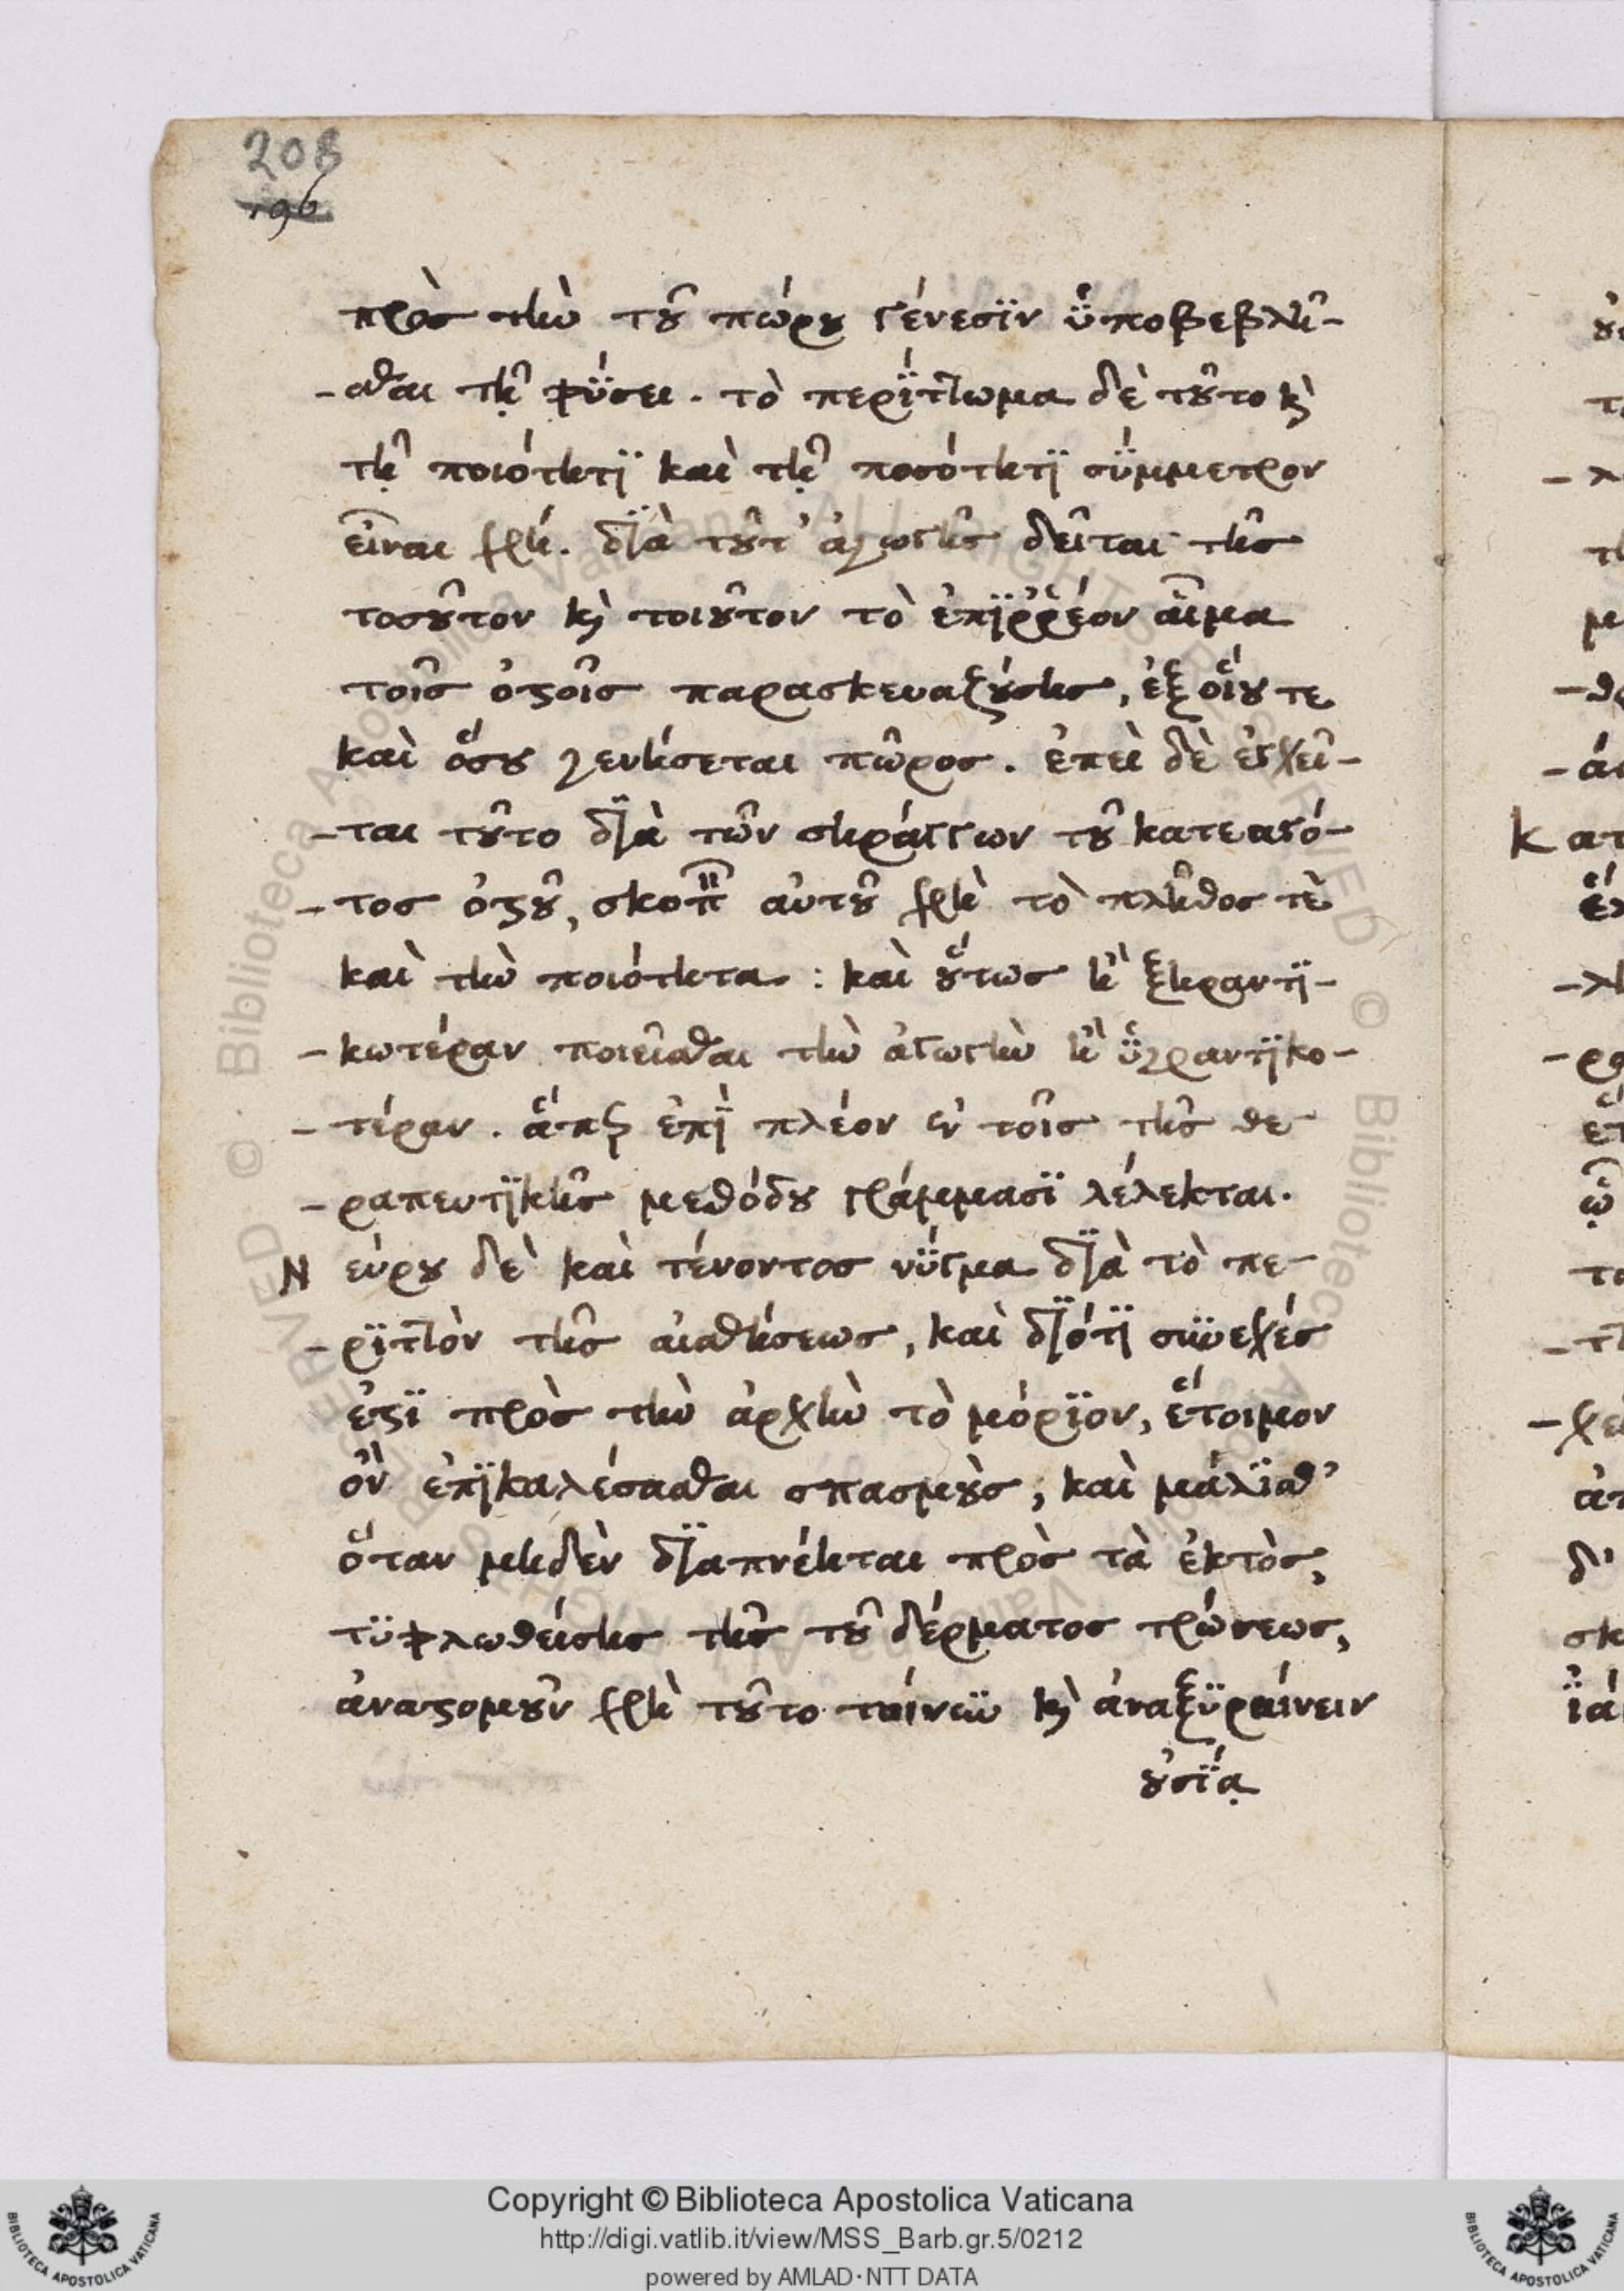 208
196
πρὸς τὴν τοῦ πώρου γένεσϊν ὑποβεβλῆ-
-σθαι τῇ φύσει. τὸ περίττωμα δὲ τοῦτο καὶ
τῇ ποιότητϊ καὶ τῇ ποσότητϊ σύμμετρον
εἶναι χρή. δϊὰ τοῦτ' ἀγωγῆς δεῖται τῆς
τοσοῦτον καὶ τοιοῦτον τὸ ἐπϊῤῥέον αἷμα
τοῖς ὀστοῖς παρασκευαζούσης, ἐξ οἵου τε
καὶ ὅσου γενήσεται πῶρος. ἐπεὶ δὲ ἐγχεῖ-
-ται τοῦτο δϊὰ τῶν σηράγγων τοῦ κατεαγό-
-τος ὀστοῦ, σκοπεῖν αὐτοῦ χρὴ τὸ πλῆθος τὲ
καὶ τὴν ποιότητα: καὶ οὕτως ἢ ξηραντϊ-
-κωτέραν ποιεῖσθαι τὴν ἀγωγὴν ἢ ὑγραντϊκο-
-τέραν. ἅπερ ἐπὶ πλέον ἐν τοῖς τῆς θε-
-ραπευτϊκῆς μεθόδου γράμμασϊ λέλεκται.
Νεύρου δὲ καὶ τένοντος νύγμα δϊὰ τὸ πε-
-ρϊττὸν τῆς αἰσθήσεως, καὶ δϊότϊ συνεχές
ἐστϊ πρὸς τὴν ἀρχὴν τὸ μόρϊον, ἕτοιμον
οὖν ἐπϊκαλέσασθαι σπασμοὺς, καὶ μάλϊσθ'
ὅταν μηδὲν δϊαπνέηται πρὸς τὰ ἐκτὸς,
τϋφλωθείσης τῆς τοῦ δέρματος τρώσεως,
ἀναστομοῦν χρὴ τοῦτο τοίνυν καὶ ἀναξϋραίνειν
οὐσίᾳ
Copyright © Biblioteca Apostolica Vaticana
http://digi.vatlib.it/view/MSS_Barb.gr.5/0212
powered by AMLAD·NTT DATA